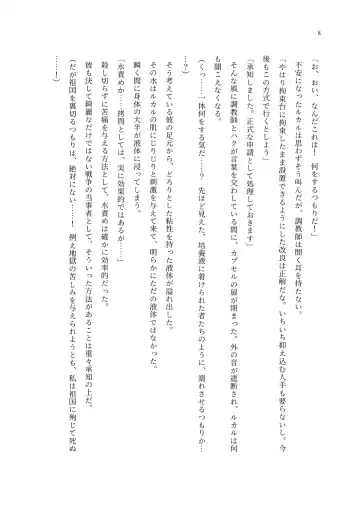 8
「お、おい、なんだこれは！　何をするつもりだ！」
不安になったルカルは思わずそう叫んだが、調教師は聞く耳を持たない。
「やはり拘束台に拘束したまま設置できるようにした改良は正解だな。いちいち抑え込む人手も要らないし。今
後もこの方式で行くとしよう」
「承知しました。正式な申請として処理しておきます」
そんな風に調教師とハクが言葉を交わしている間に、カプセルの扉が閉まる。外の音が遮断され、ルカルは何
も聞こえなくなる。
（くっ……一体何をする気だ……？　先ほど見えた、培養液に着けられた者たちのように、溺れさせるつもりか…
…？）
そう考えている彼の足元から、どろりとした粘性を持った液体が溢れ出した。
その水はルカルの肌にじりじりと刺激を与えて来て、明らかにただの液体ではなかった。
瞬く間に身体の大半が液体に浸ってしまう。
（水責めか……拷問としては、実に効果的ではあるが……）
殺し切らずに苦痛を与える方法として、水責めは確かに簡単だ。
彼も決して綺麗なだけではない戦争の当事者として、そういった方法があることは重々承知の上だ。
（だが祖国を裏切るつもりは、絶対にない……！　例え地獄の苦しみを与えられようとも、私は祖国に殉じて死ぬ
……！）